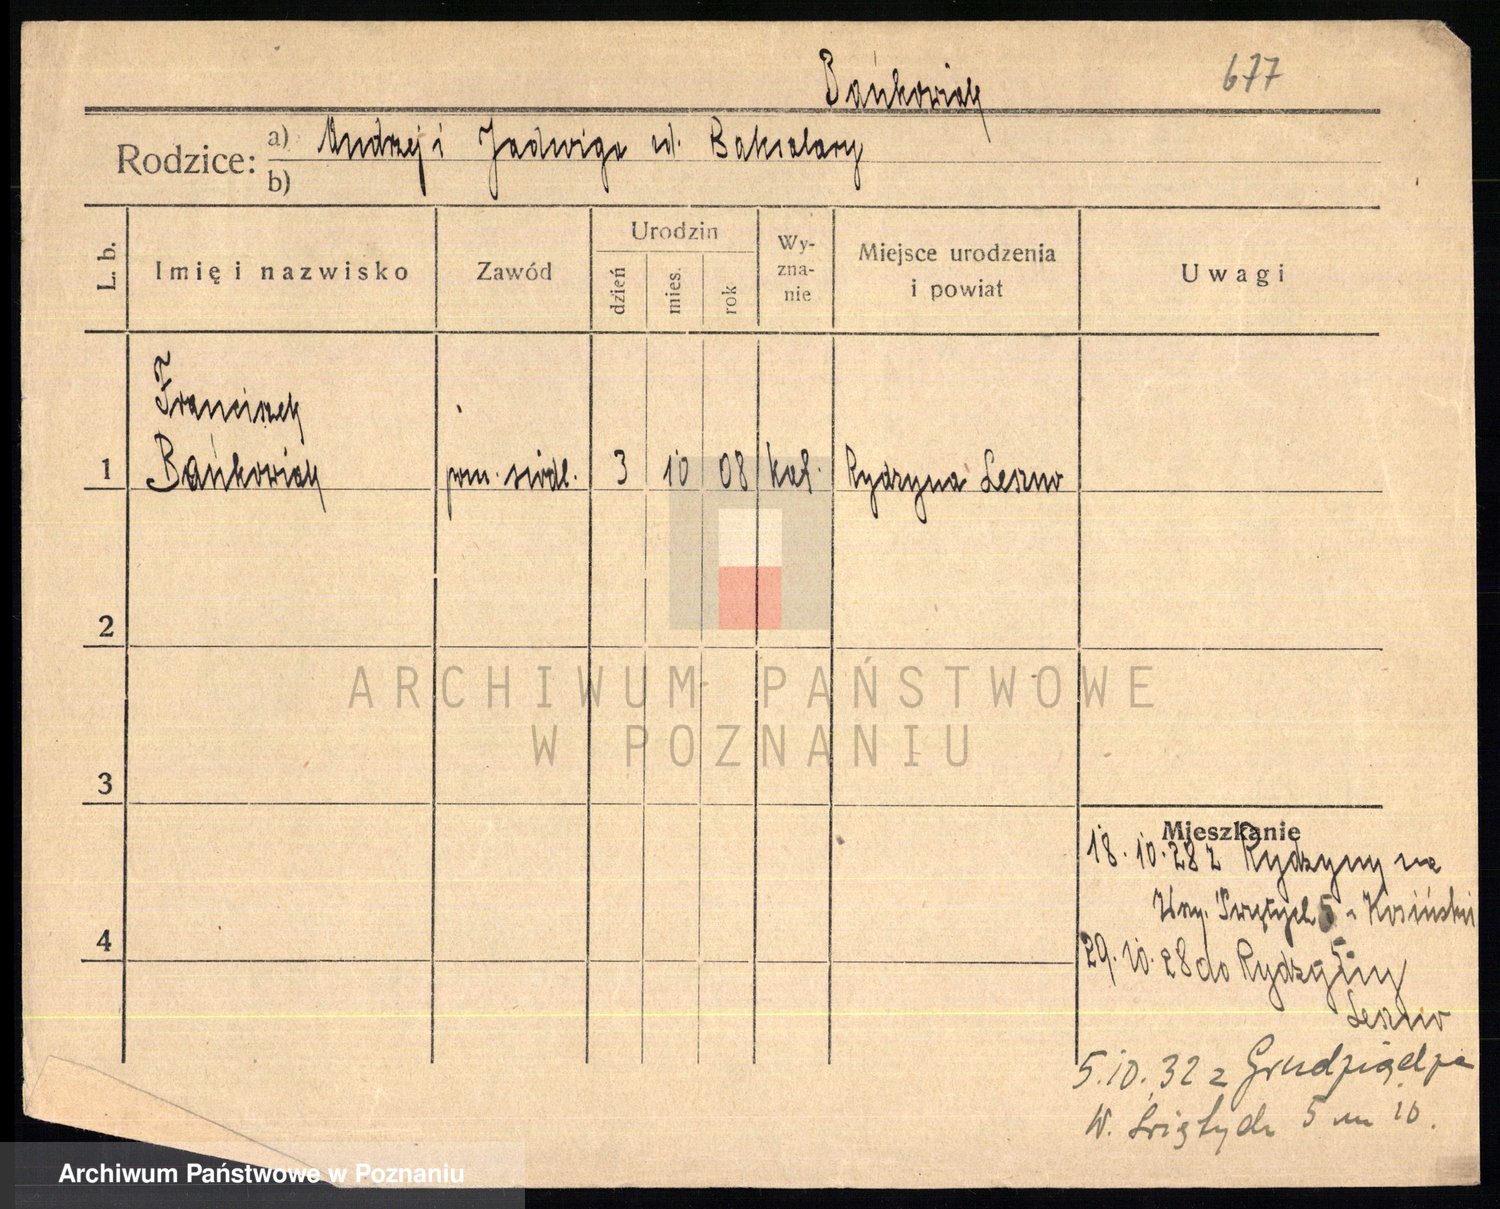 Bańkowiak
677
Rodzice: a) Andrzej i Jadwiga ud. Bakalary
b)
L. b. Imię i nazwisko Zawód Urodzin dzień mies. rok Wy-zna-nie Miejsce urodzenia i powiat Uwagi
Franciszek
1 Bańkowiak pom. siodl. 3 10 08 kat. Rydzyna Leszno
2
ARCHIWUM PAŃSTWOWE
W POZNANIU
3
Mieszkanie
18.10.28 z Rydzyny na
Wsz. Świętych 5 Kosiński
4
29.10.28 do Rydzyny
Leszno
5.10.32 z Grudziądza
W. Świętych 5 m 10.
Archiwum Państwowe w Poznaniu